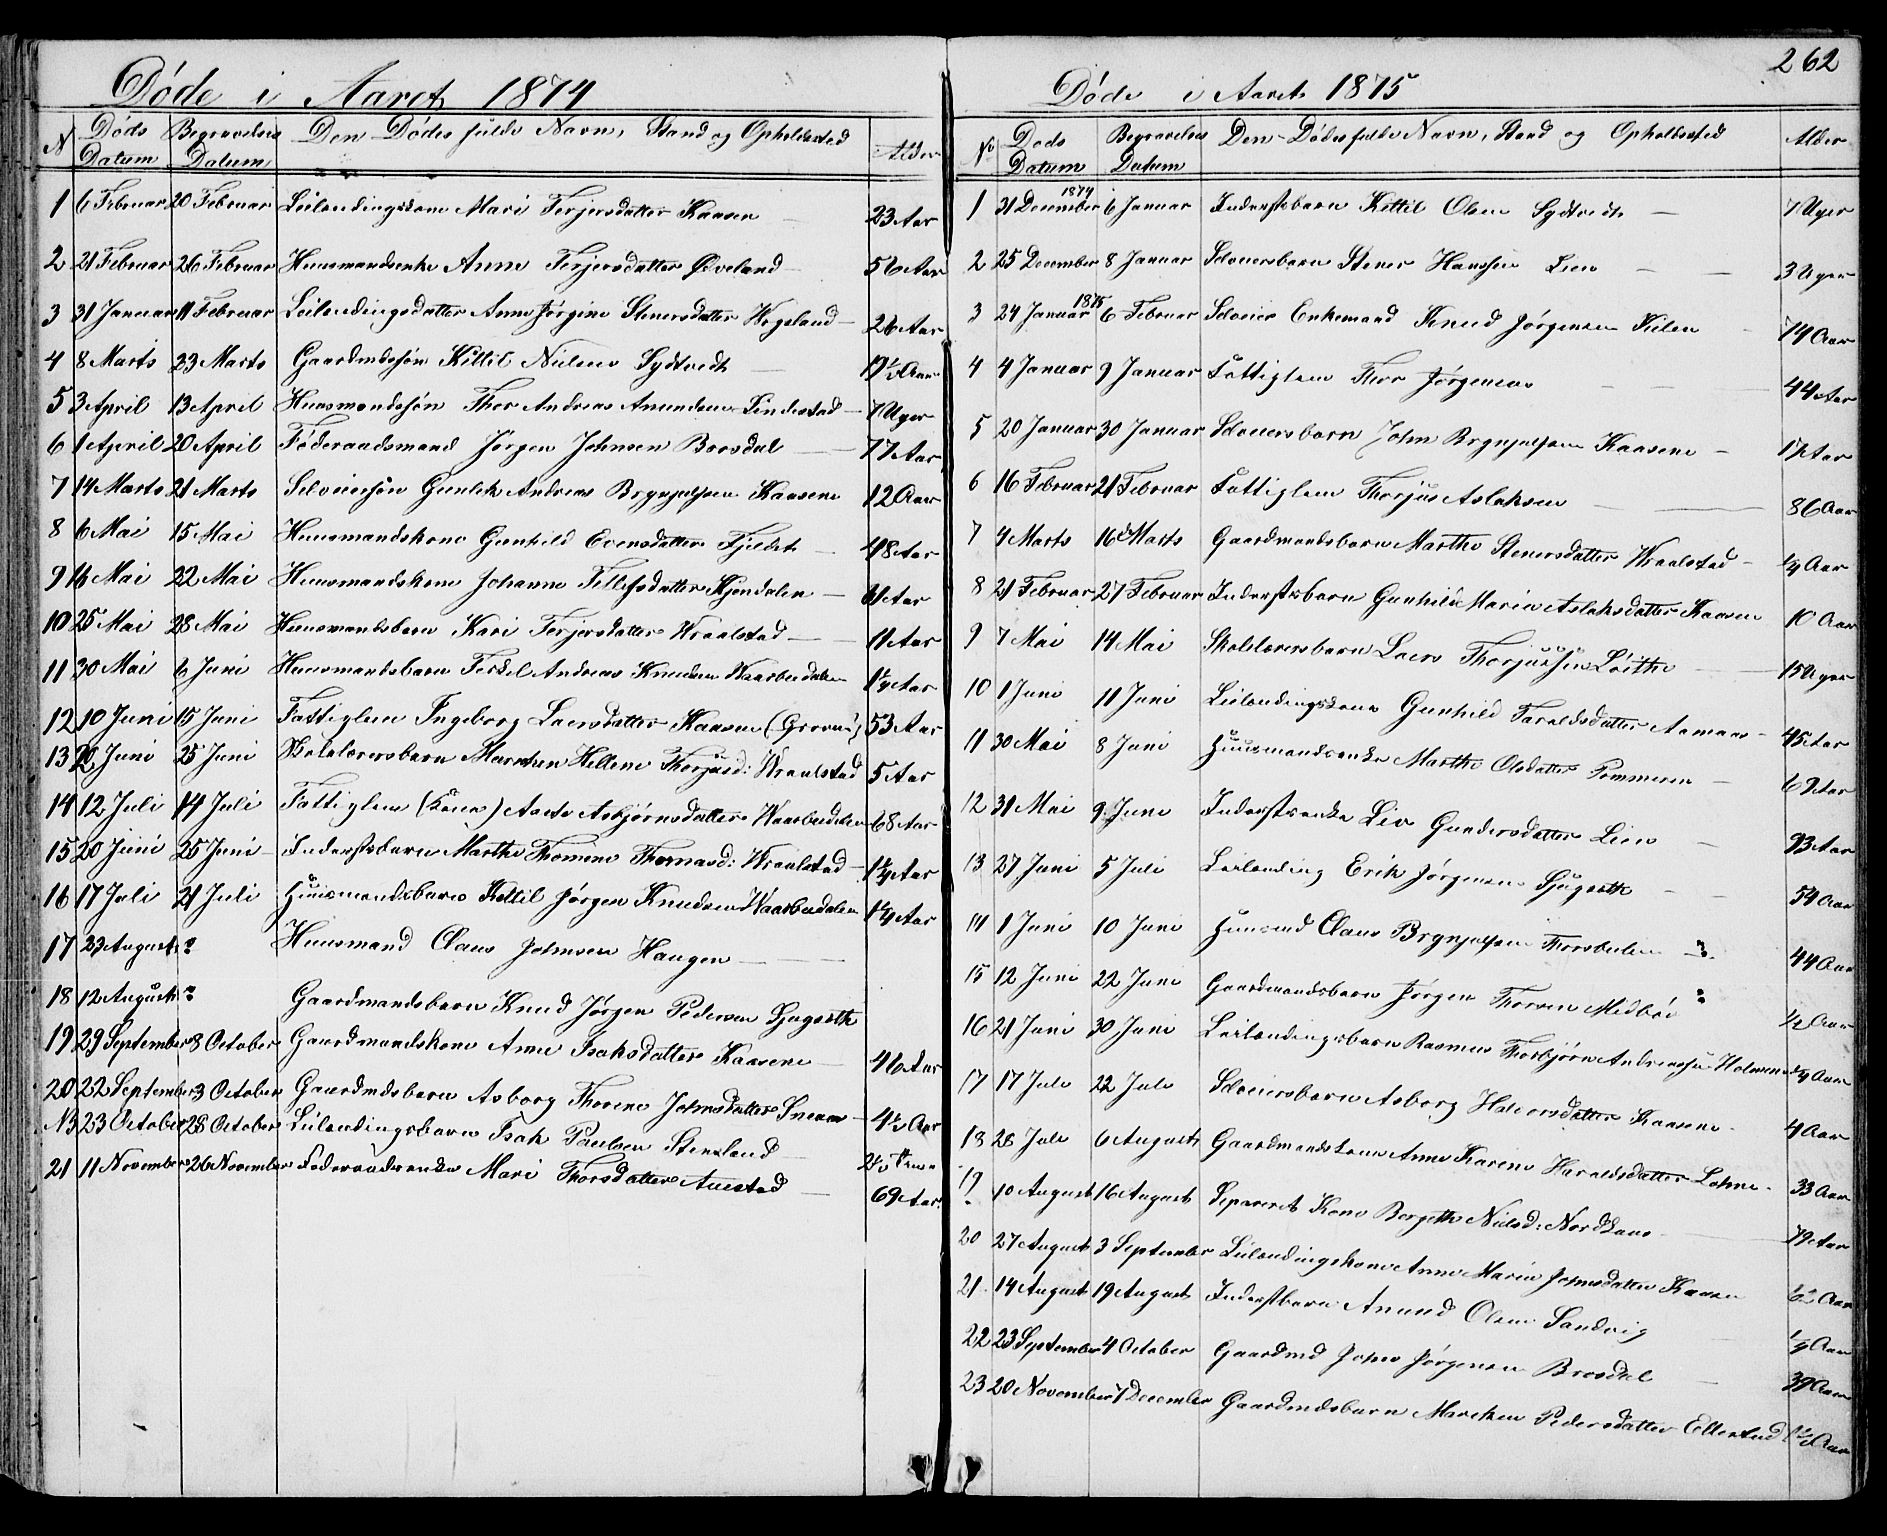 262
Døde i Aaret 1874
N Døds Datum Begravelses Datum Den Dødes fulde Navn, Stand og Opholdssted Alder
1 6 Februar 20 Februar Leilændingskone Mari Terjersdatter Kaasen 23 Aar
2 21 Februar 26 Februar Huusmandsenke Anne Terjersdatter Ødveland 56 Aar
3 31 Januar 11 Februar Leilændingsdatter Anne Jørgine Stenersdatter Wegeland 26 Aar
4 8 Marts 23 Marts Gaardmdssøn Kittil Nielsen Sydtvedt Aar
5 3 April 13 April Huusmandssøn Thor Andreas Amundsen Lindestad 7 Uger
6 1 April 20 April Føderaadsmand Jørgen Johnsen Borsdal 77 Aar
7 14 Marts 21 Marts Selveiersøn Gunlek Andreas Brynjulfsen Kaasene 12 Aar
8 6 Mai 15 Mai Huusmandskone Gunhild Evensdatter Fjeldet 48 Aar
9 16 Mai 22 Mai Huusmandskone Johanne Tellefsdatter Kjendalen 61 Aar
10 25 Mai 28 Mai Huusmandsbarn Kari Terjersdatter Wraalstad 11 Aar
11 30 Mai 6 Juni Huusmandsbarn Terkel Andreas Knudsen Waasbudalen 1 1/4 Aar
12 10 Juni 15 Juni Fattiglem Ingeborg Laersdatter Kaasen (Grovas) 53 Aar
13 22 Juni 25 Juni Skolelærersbarn Marthea Hellene Thorjusd: Wraalstad 5 Aar
14 12 Juli 14 Juli Fattiglem (Kone) Aaste Asbjørnsdatter Waasbudalen 68 Aar
15 20 Juni 25 Juni Inderstsbarn Marthe Thomine Thomasd: Wraalstad 1 1/4 Aar
16 17 Juli 21 Juli Huusmandsbarn Kittil Jørgen Knudsen Waasbudalen 1 1/4 Aar
17 23 August ? Huusmand Claus Johnsen Haugen
18 12 August ? Gaardmandsbarn Knud Jørgen Pedersen Sjugurth
19 29 September 8 October Gaardmandskone Anne Isaksdatter Kaasene 46 Aar
20 22 September 3 October Gaardmdsbarn Asborg Thorine Johnsdatter Sneaas 4 1/2 Aar
N3 23 October 28 October Leilændingsbarn Isak Paulsen Stensland 2 1/2
21 11 November 26 November Føderaadsenke Mari Thorsdatter Auestad 69 Aar.
Døde i Aaret 1875
No Døds Datum Begravelses Datum Den Dødes fulde Navn, Stand og Opholdssted Alder
1 31 December 1874 6 Januar Inderstsbarn Kittil Olsen Sydtvedt 7 Uger
2 25 December 8 Januar Selveiersbarn Stener Hansen Lien 3 Uger
3 24 Januar 1875 6 Februar Selveier Enkemand Knud Jørgensen Kilen 74 Aar
4 4 Januar 9 Januar Fattiglem Thor Jørgensen 44 Aar
5 20 Januar 30 Januar Selveiersbarn John Brynjulfsen Kaasene 17 Aar
6 16 Februar 21 Februar Fattiglem Thorjus Aslaksen 86 Aar
7 4 Marts 16de Marts Gaardmandsbarn Marthe Stenersdatter Wraalstad 1/4 Aar
8 21 Februar 27 Februar Inderstsbarn Gunhild Marie Aslaksdatter Kaasen 10 Aar
9 7 Mai 14 Mai Skolelærersbarn Laers Thorjussen Løite 15 Uger
10 1 Juni 11 Juni Leilændingskone Gunhild Taraldsdatter Aamaas 45 Aar
11 30 Mai 8 Juni Huusmandsenke Marthe Olsdatter Pommeren 69 Aar
12 31 Mai 9 Juni Inderstsenke Liv Gundersdatter Lien 93 Aar
13 27 Juni 5 Juli Leilænding Erik Jørgensen Sjugurth 54 Aar
14 1 Juni 10 Juni Huusmd Claus Brynjulfsen Thorsbulien ? 44 Aar
15 12 Juni 22 Juni Gaardmandsbarn Jørgen Thorsen Midbøe ? 1/2 Aar
16 21 Juni 30 Juni Leilændingsbarn Rasmus Thorbjørn Andreassen Holmene 3/4 Aar
17 17 Juli 22 Juli Selveiersbarn Asborg Halvorsdatter Kaasene 4 Aar
18 28 Juli 6 August Gaardmandskone Anne Karine Haraldsdatter Lohne 33 Aar
19 10 August 16 August Separeret Kone Bergith Nielsd: Nordkaas 79 Aar
20 27 August 3 September Leilændingskone Anne Marie Johnsdatter Kaasen 62 Aar
21 14 August 19 August Inderstbarn Anund Olsen Sandvig 1/4 Aar
22 23 September 4 October Gaardmd John Jørgensen Brosdal 39 Aar
23 20 November 7 December Gaardmdsbarn Marthea Pedersdatter Ellestad 1 1/2 Aar